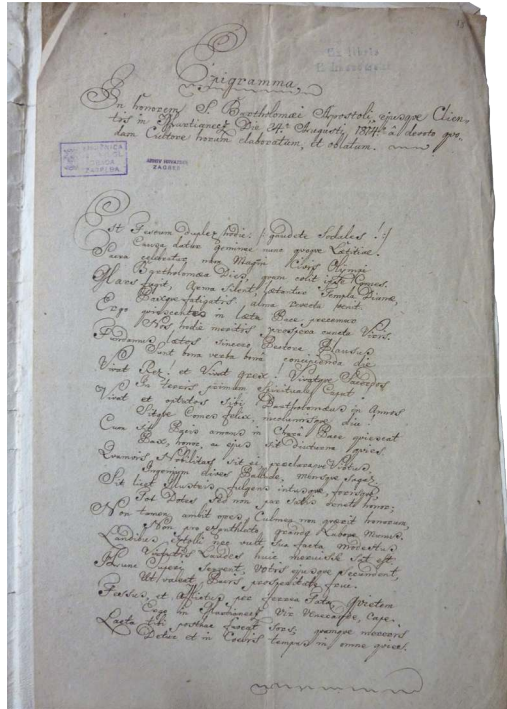 Ex libris
Epigramma,
In honorem S. Bartholomæi Apostoli, ejusque Clien-
tis in Martianecz Die 24ª Augusti, 1814º a devoto quo-
dam Cultore horum elaboratum, et oblatum.
ZAGREB
Est Festum duplex hodie: /: gaudete Sodales! :/
Causa datur geminæ nunc quoque Lætitiæ!
Sacra celebratur nam Magni Civis Olympi
Bartholomæa Dies, quem colit iste Comes.
Mars fugit, Arma silent, lætantur Templa Dianæ,
Bellisque fatigatis alma venit.
Ergo quiescentes in læta Pace precemur
Nos hodie meritis prospera cuncta Viris.
Pandamus lætos sincero Pectore Plausus
Sunt bona verba bono concipienda die
Vivat Pier! et Vivat Grex! Vivatque Sacerdos
In terris primum Spirituale Caput.
Vivat et optatos Bartholomæus in Annos
Comes felix, incolumisque die!
Cura sit Regis annus in Pace quiescat
Pax, honor, ac ejus sit diuturna quies.
Quamvis Nobilitas sit ac præclaraque Virtus,
Ingenium dives Pallade, mensque sagax.
Sit licet Illustris, fulgens intusque, forisque
Tot Dotes non satis ornet honor;
Non tamen ambit opes, Culmen non quærit honorum,
Non pro grande Munus.
Laudibus extolli nec vult sua facta modestus
Laudes huic meruisse sat est.
Hunc Superi servent, Votis ejusque secundent,
Ut valeat, Pacis prosperitate frui.
Fessus, et afflictus per ferrea Fata Quietem
Ergo in Martianecz Vir Venerande, Cape.
Læta tibi posthac fulgeat Sors; quamque mereris
Detur et in Cœlis tempus in omne quies.